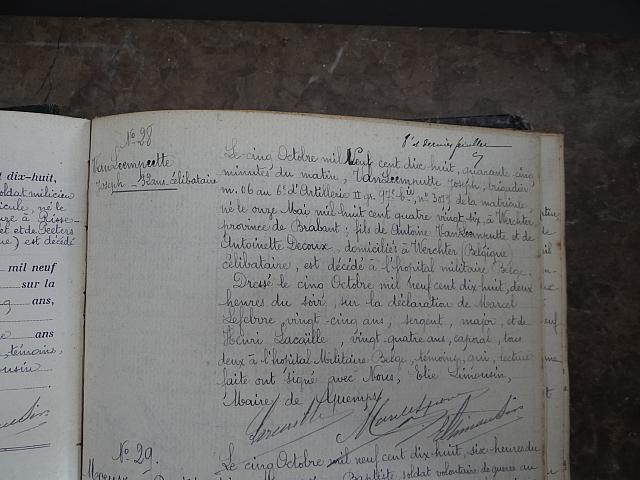 t dix-huit,
oldat milicien
icule, né le
et de Peeters
ue) est décédé
mil neuf
sur la
ans,
ans
témoins,
ousin
N° 28
VanLoemputte
Joseph - 32 ans célibataire
1er et dernier feuillet
Le cinq Octobre mil Neuf cent dix-huit, quarante cinq
minutes du matin, VanLoemputte Joseph, brigadier
m. 06 au 6e d'Artillerie II gr. 97e bie, n° 3073 de la matricule
né le onze Mai mil huit cent quatre vingt-six, à Werchter
province de Brabant; fils de Antoine VanLoemputte et de
Antoinette Decoux, domiciliés à Werchter (Belgique)
célibataire, est décédé à l'hôpital militaire Belge.
Dressé le cinq Octobre mil neuf cent dix-huit, deux
heures du soir, sur la déclaration de Marcel
Lefebvre, vingt-cinq ans, sergent, major, et de
Henri Lacaille, vingt-quatre ans, caporal, tous
deux à l'hôpital Militaire Belge, témoins, qui, lecture
faite ont signé avec Nous, Elie Limousin,
Maire de Guemps.
N° 29.
Le cinq Octobre mil neuf cent dix-huit, six heures du
Baptiste, soldat volontaire de guerre au